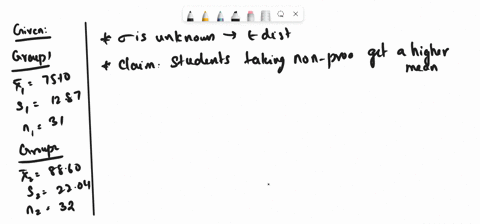 Given:
Group1
x̄₁ = 75.10
s₁ = 12.87
n₁ = 31
Group2
x̄₂ = 88.60
s₂ = 22.04
n₂ = 32
* σ is unknown → t dist
* Claim: Students taking non-proo get a higher
mean